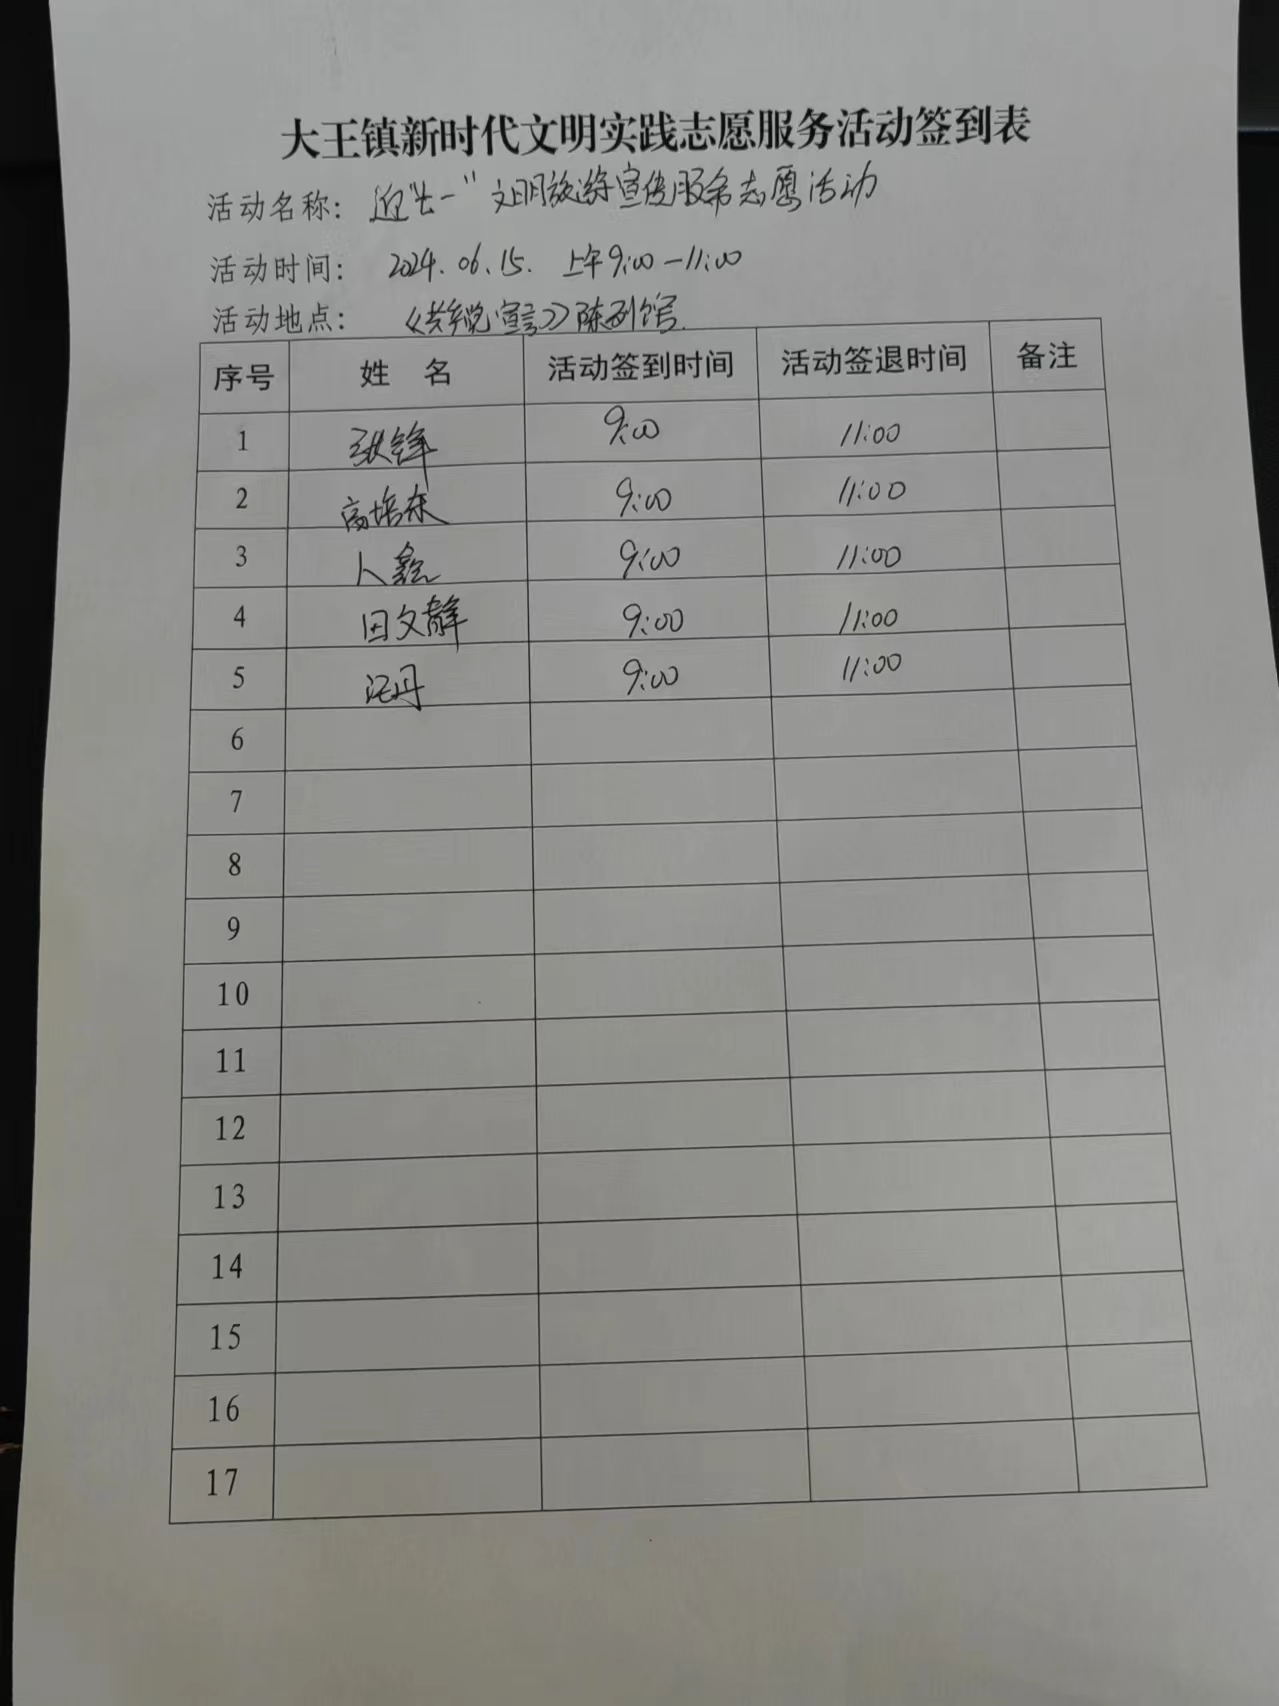 大王镇新时代文明实践志愿服务活动签到表
活动名称：迎"七一"文明旅游宣传服务志愿活动
活动时间：2024.06.15. 上午9:00—11:00
活动地点：《共产党宣言》陈列馆
序号 姓 名 活动签到时间 活动签退时间 备注
1 张锋 9:00 11:00
2 高培东 9:00 11:00
3 9:00 11:00
4 田文静 9:00 11:00
5 丹 9:00 11:00
6
7
8
9
10
11
12
13
14
15
16
17